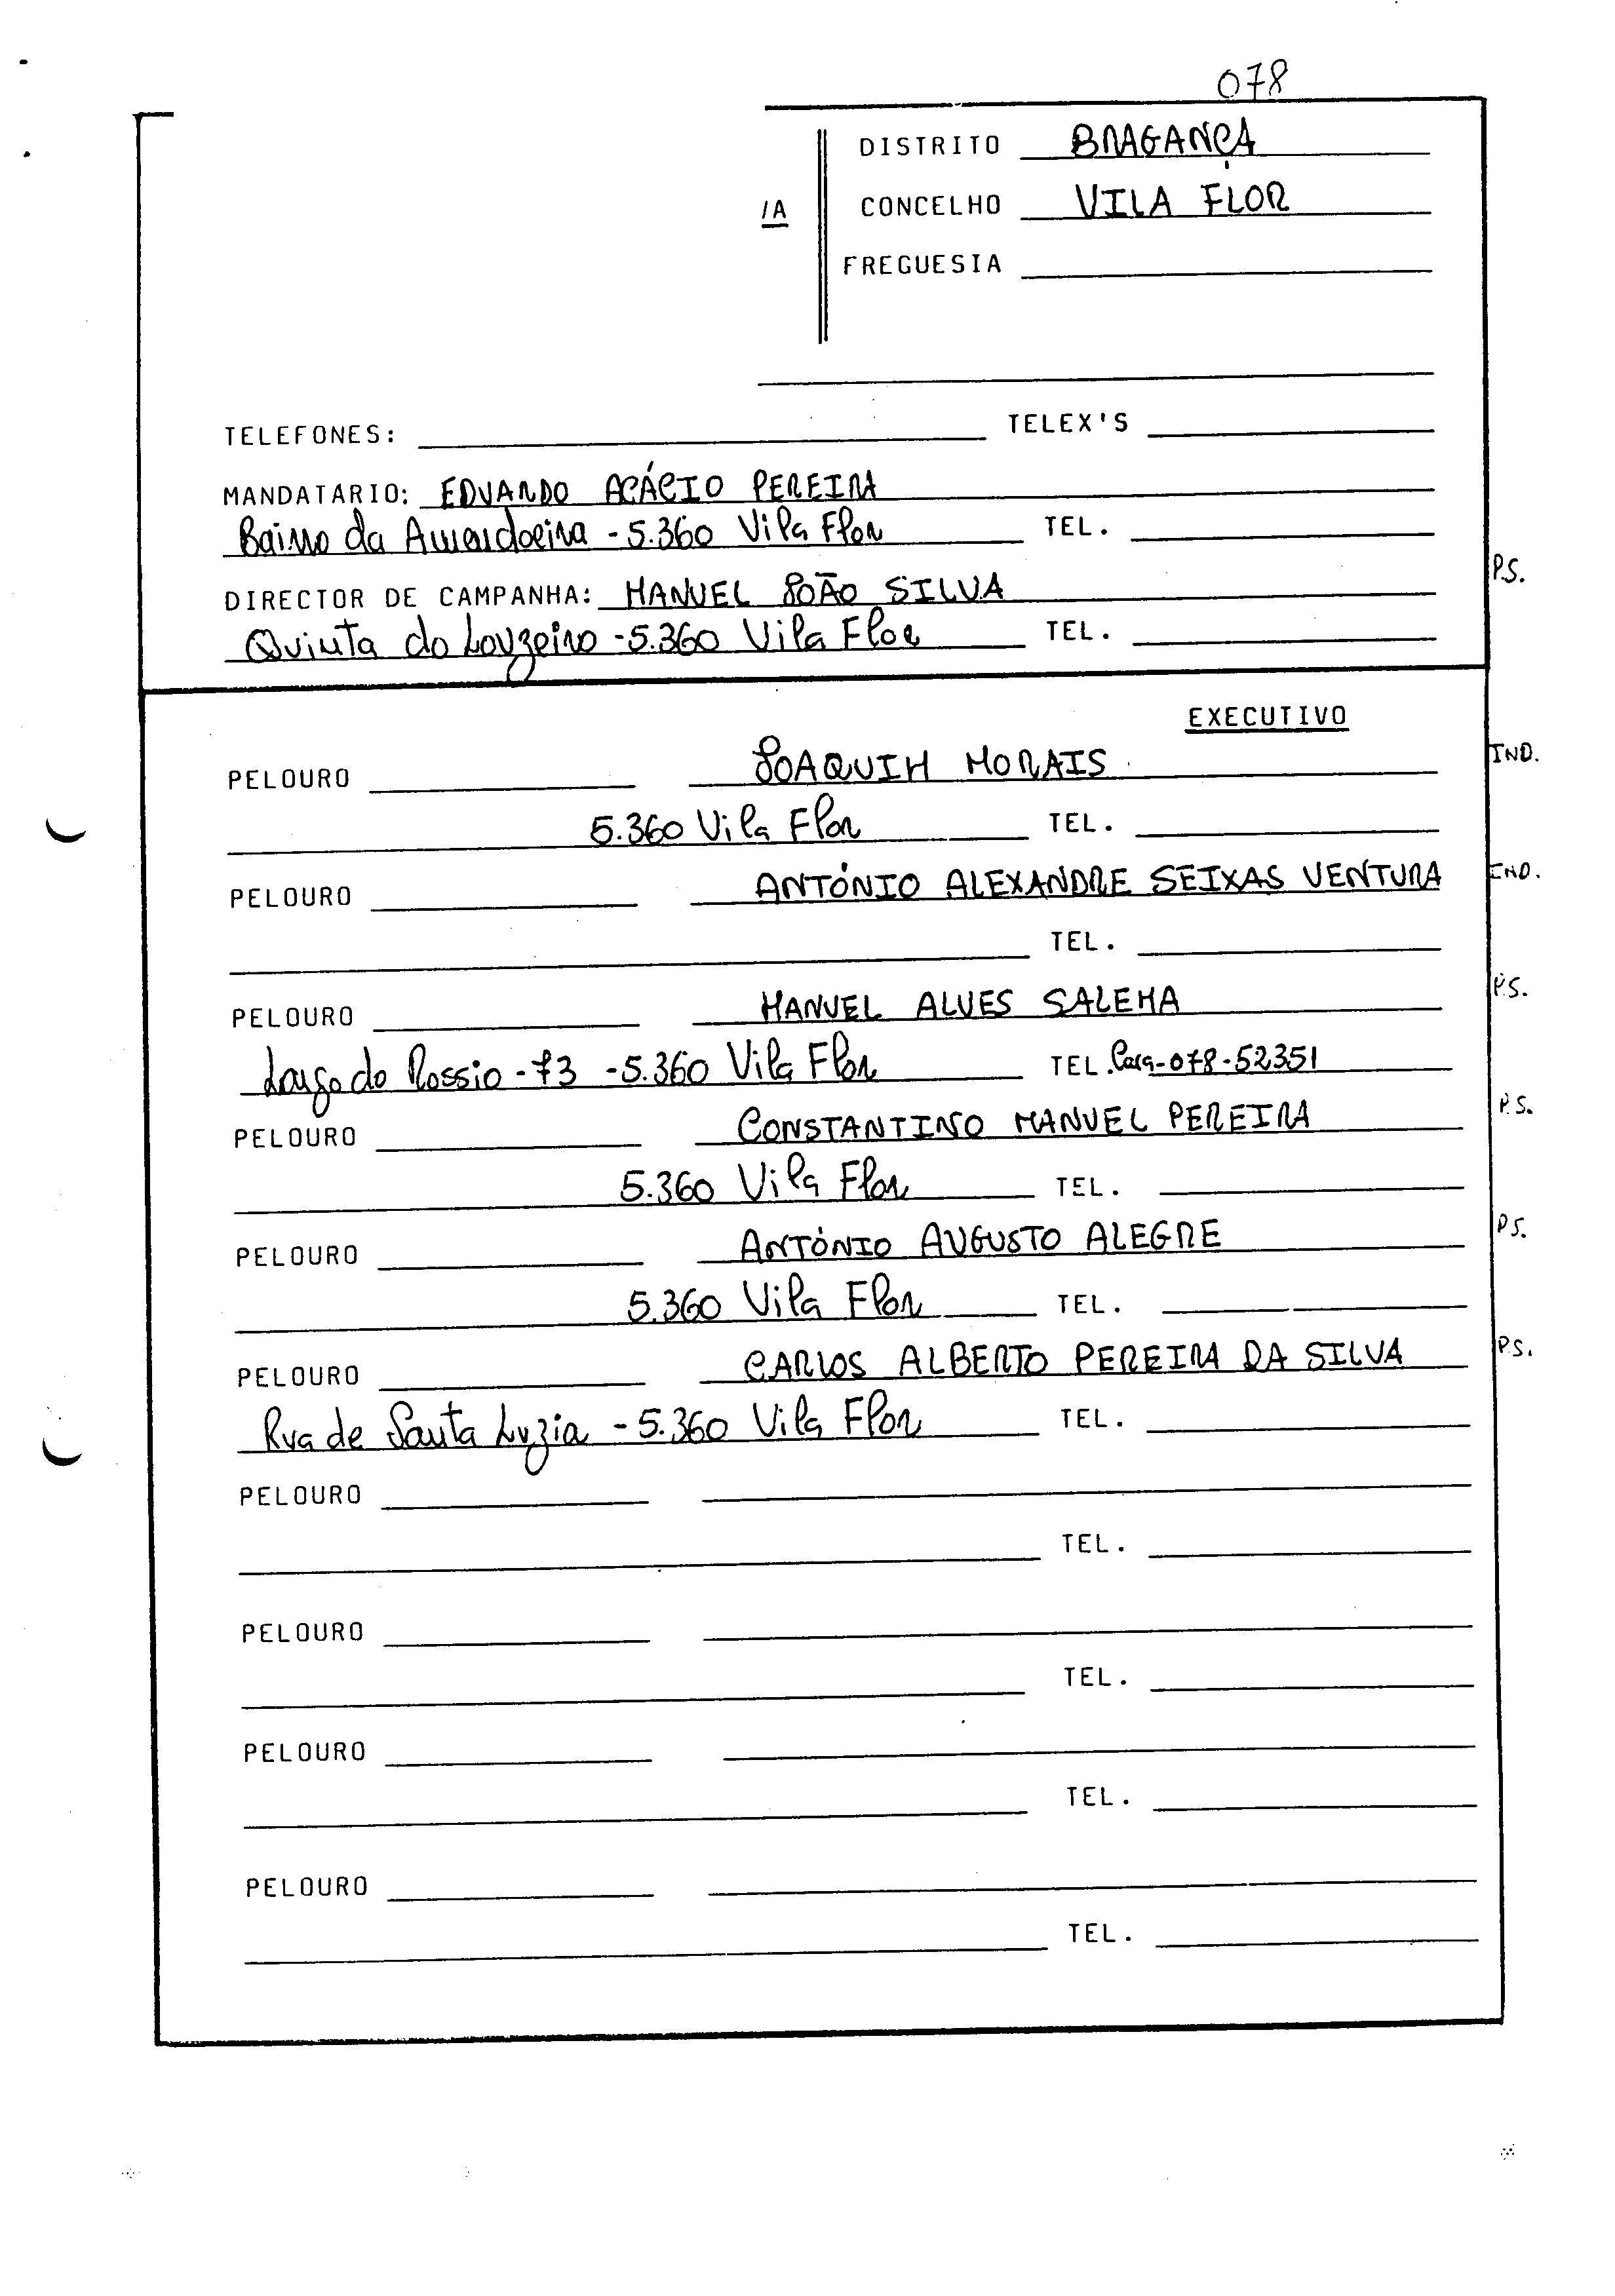 078
DISTRITO BRAGANÇA
/A CONCELHO VILA FLOR
FREGUESIA
TELEFONES: TELEX'S
MANDATARIO: EDUARDO ACÁCIO PEREIRA
Bairro da Amendoeira - 5.360 Vila Flor TEL.
P.S.
DIRECTOR DE CAMPANHA: MANUEL JOÃO SILVA
Quinta do Louzeiro - 5.360 Vila Flor TEL.
EXECUTIVO
PELOURO JOAQUIM MORAIS IND.
5.360 Vila Flor TEL.
PELOURO ANTÓNIO ALEXANDRE SEIXAS VENTURA IND.
TEL.
PELOURO MANUEL ALVES SALEMA P.S.
Largo do Rossio - 73 - 5.360 Vila Flor TEL. Casa - 078 - 52351
PELOURO CONSTANTINO MANUEL PEREIRA P.S.
5.360 Vila Flor TEL.
PELOURO ANTÓNIO AUGUSTO ALEGRE P.S.
5.360 Vila Flor TEL.
PELOURO CARLOS ALBERTO PEREIRA DA SILVA P.S.
Rua de Santa Luzia - 5.360 Vila Flor TEL.
PELOURO
TEL.
PELOURO
TEL.
PELOURO
TEL.
PELOURO
TEL.